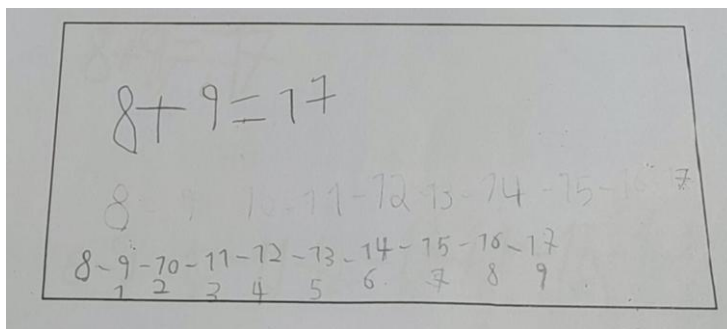 8+9=17
8 11-12 13-14-15- 7
8-9-10-11-12-13-14-15-16-17
1 2 3 4 5 6 7 8 9